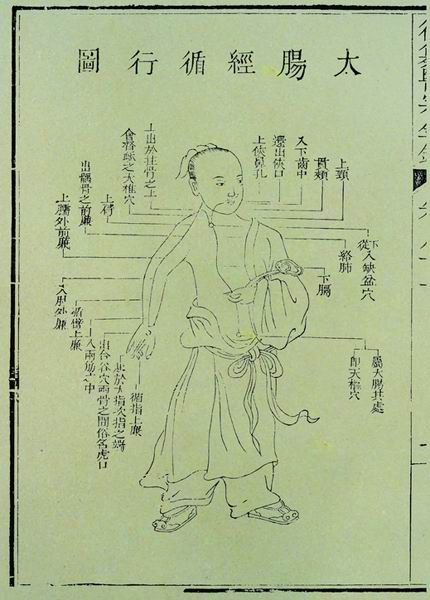 太腸經循行圖
上頸
貫頰
入下齒中
還出俠口
上俠鼻孔
上出於柱骨之上
會督脈之大椎穴
出髃骨之前廉
上臑外前廉
從下入缺盆穴
絡肺
下膈
屬大腸其處
即天樞穴
入肘外廉
循臂上廉
入兩筋之中
出合谷穴兩骨之間俗名虎口
起於大指次指之端
循指上廉